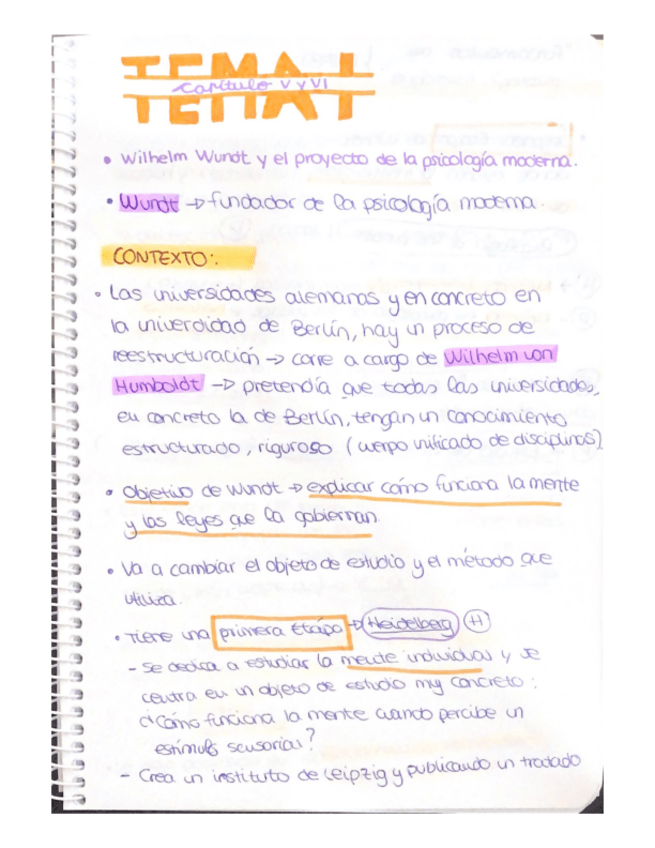 TEMA I
Capítulo V y VI
• Wilhelm Wundt y el proyecto de la psicología moderna.
• Wundt → fundador de la psicología moderna.
CONTEXTO:.
• Las universidades alemanas y en concreto en
la univerdidad de Berlín, hay un proceso de
reestructuración → corre a cargo de Wilhelm von
Humboldt → pretendía que todas las universidades,
en concreto la de Berlín, tengan un conocimiento
estructurado, riguroso (cuerpo unificado de disciplinas)
• Objetivo de Wundt → explicar cómo funciona la mente
y las leyes que la gobiernan.
• Va a cambiar el objeto de estudio y el método que
utiliza.
• Tiene una primera Etapa → Heidelberg H
- Se dedica a estudiar la mente individual y se
centra en un objeto de estudio muy concreto:
¿Cómo funciona la mente cuando percibe un
estímulo sensorial?
- Crea un instituto de Leipzig y publicando un tratado